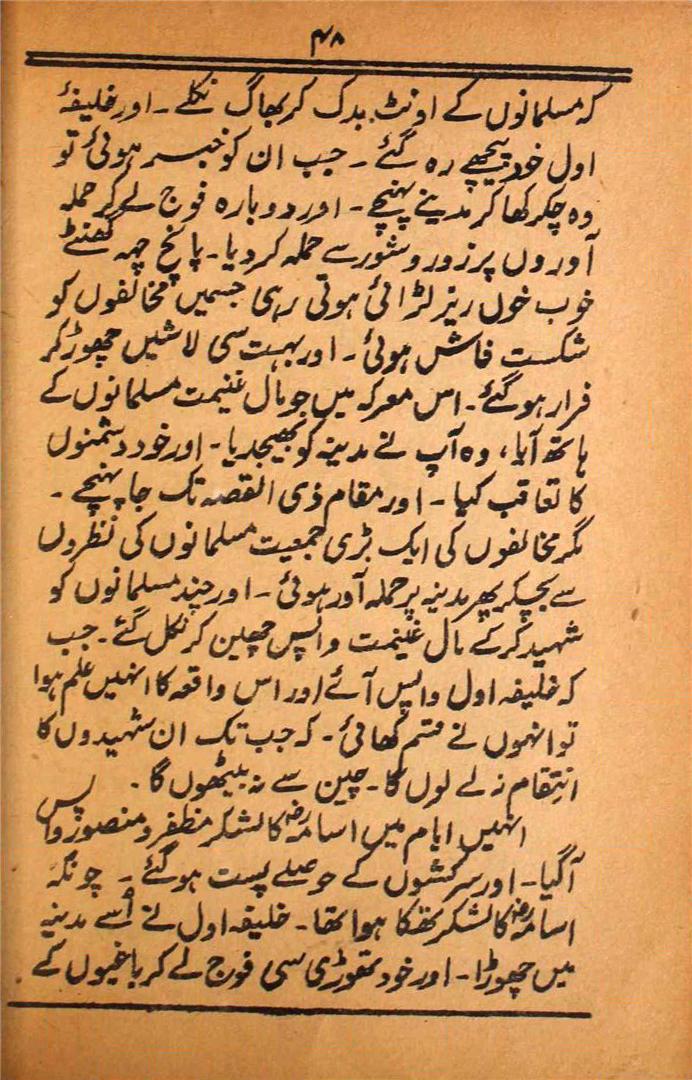 ۴۸
کہ مسلمانوں کے اونٹ بدک کر بھاگ نکلے ۔ اور خلیفۂ
اول خود پیچھے رہ گئے ۔ جب ان کو خبر ہوئی تو
وہ چکر کھا کر مدینے پہنچے ۔ اور دوبارہ فوج لے کر حملہ
آوروں پر زور و شور سے حملہ کر دیا ۔ پانچ چھہ گھنٹے
خوب خوں ریز لڑائی ہوتی رہی جسمیں مخالفوں کو
شکست فاش ہوئی ۔ اور بہت سی لاشیں چھوڑ کر
فرار ہو گئے ۔ اس معرکہ میں جو مال غنیمت مسلمانوں کے
ہاتھ آیا ، وہ آپ نے مدینہ کو بھیجدیا ۔ اور خود دشمنوں
کا تعاقب کیا ۔ اور مقام ذی القصہ تک جا پہنچے ۔
مگر مخالفوں کی ایک بڑی جمعیت مسلمانوں کی نظروں
سے بچکر پھر مدینہ پر حملہ آور ہوئی ۔ اور چند مسلمانوں کو
شہید کر کے مال غنیمت واپس چھین کر نکل گئے ۔ جب
کہ خلیفہ اول واپس آئے اور اس واقعہ کا انہیں علم ہوا
تو انہوں نے قسم کھائی ۔ کہ جب تک ان شہیدوں کا
انتِقام نہ لے لوں گا ۔ چین سے نہ بیٹھوں گا ۔
انہیں ایام میں اسامہؓ کا لشکر مظفر و منصور واپس
آگیا ۔ اور سرکشوں کے حوصلے پست ہو گئے ۔ چونکہ
اسامہؓ کا لشکر تھکا ہوا تھا ۔ خلیفہ اول نے اُسے مدینہ
میں چھوڑا ۔ اور خود تھوڑی سی فوج لے کر باغیوں کے